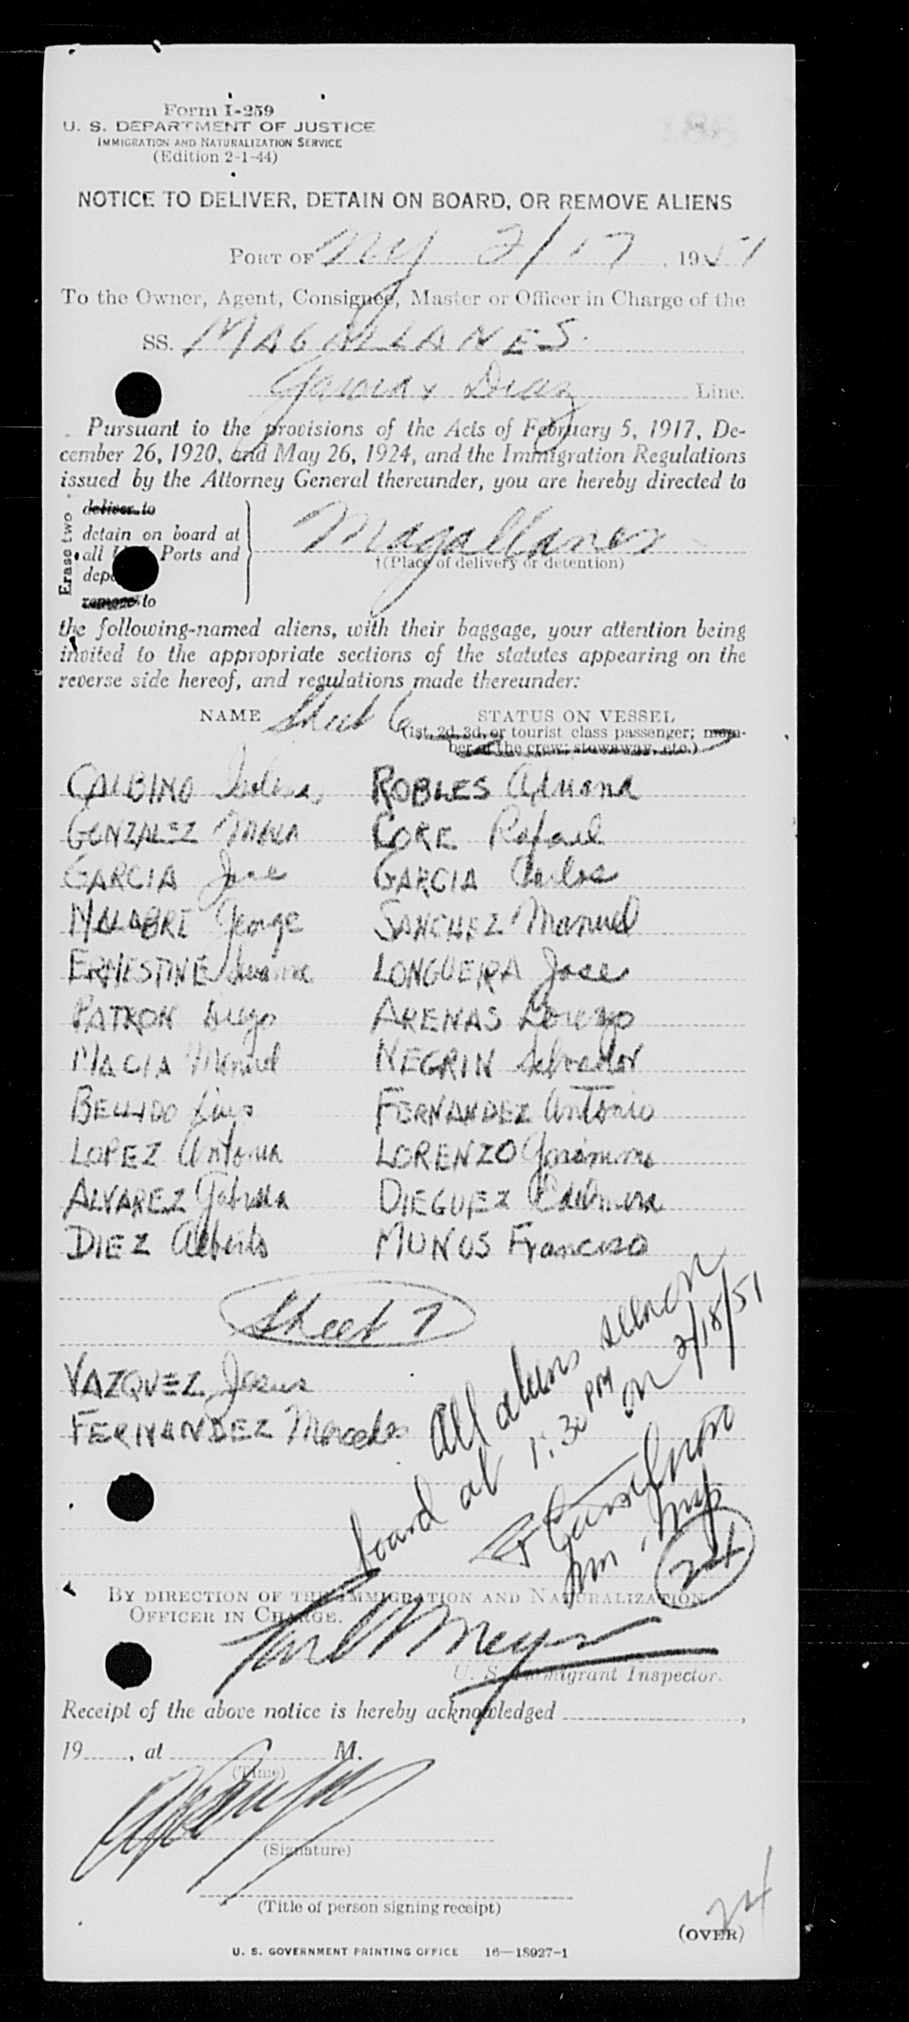 Form I-259
U. S. DEPARTMENT OF JUSTICE
IMMIGRATION AND NATURALIZATION SERVICE
(Edition 2-1-44)
NOTICE TO DELIVER, DETAIN ON BOARD, OR REMOVE ALIENS
PORT OF NY 2/17, 1951
To the Owner, Agent, Consignee, Master or Officer in Charge of the
SS. MAGALLANES
Garcia & Diaz Line.
Pursuant to the provisions of the Acts of February 5, 1917, De-
cember 26, 1920, and May 26, 1924, and the Immigration Regulations
issued by the Attorney General thereunder, you are hereby directed to
Erase two
deliver to
detain on board at
all Ports and
remove to
Magallanes
†(Place of delivery or detention)
the following-named aliens, with their baggage, your attention being
invited to the appropriate sections of the statutes appearing on the
reverse side hereof, and regulations made thereunder:
NAME Sheet 6 STATUS ON VESSEL
(1st, 2d, 3d, or tourist class passenger; mem-
ber of the crew; stowaway, etc.)
CALBINO ROBLES Adriana
GONZALEZ Maria CORE Rafael
GARCIA Jose GARCIA Carlos
MALABRE George SANCHEZ Manuel
ERNESTINE LONGUEIRA Jose
PATRON Diego ARENAS Lorenzo
MACIA Manuel NEGRIN Salvador
BELLIDO Luis FERNANDEZ Antonio
LOPEZ Antonia LORENZO Geronimo
ALVAREZ Gabriela DIEGUEZ Edelmira
DIEZ Alberto MUNOS Francisco
Sheet 7
VAZQUEZ Jesus
FERNANDEZ Mercedes
All aliens seen on
board at 1:30 PM on 2/18/51
24
BY DIRECTION OF THE IMMIGRATION AND NATURALIZATION
OFFICER IN CHARGE.
U. S. Immigrant Inspector.
Receipt of the above notice is hereby acknowledged ,
19 , at M.
(Time)
(Signature)
(Title of person signing receipt)
24
(OVER)
U. S. GOVERNMENT PRINTING OFFICE 16—18927-1